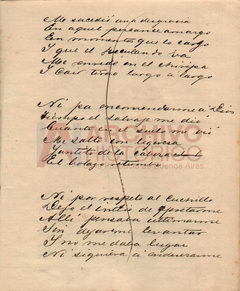 Me sucedió una desgracia
En aquel percance amargo
En momentos que lo cargo
Y que él reculando va
Me enredo en el chiripá
Y cair tirao largo a largo
Ni pa encomendarme a Dios
Tiempo el salvage me dió
Cuando en el suelo me vió
Me saltó con ligereza
Juntito de la cabeza
El bolazo retumbó
Ni por respeto al cuchillo
Dejó el indio de apretarme
Allí pensaba ultimarme
Sin dejarme levantar
Y no me daba lugar
Ni siquiera a enderezarme
ARCHIVO
Buenos Aires